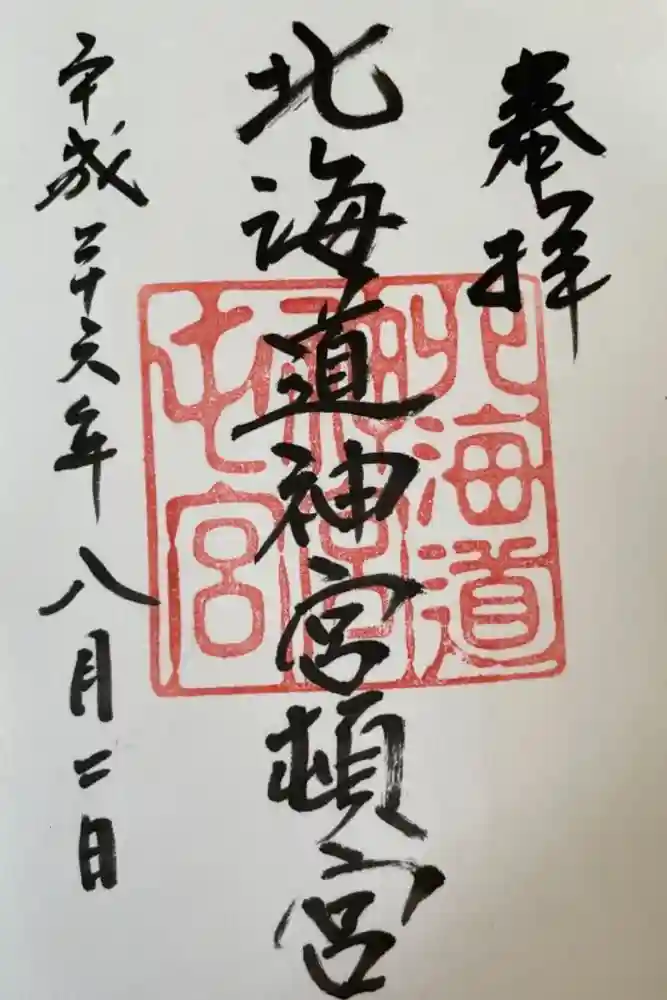 奉拝
北海道神宮頓宮
平成二十六年八月二日
北海道
神宮
宮